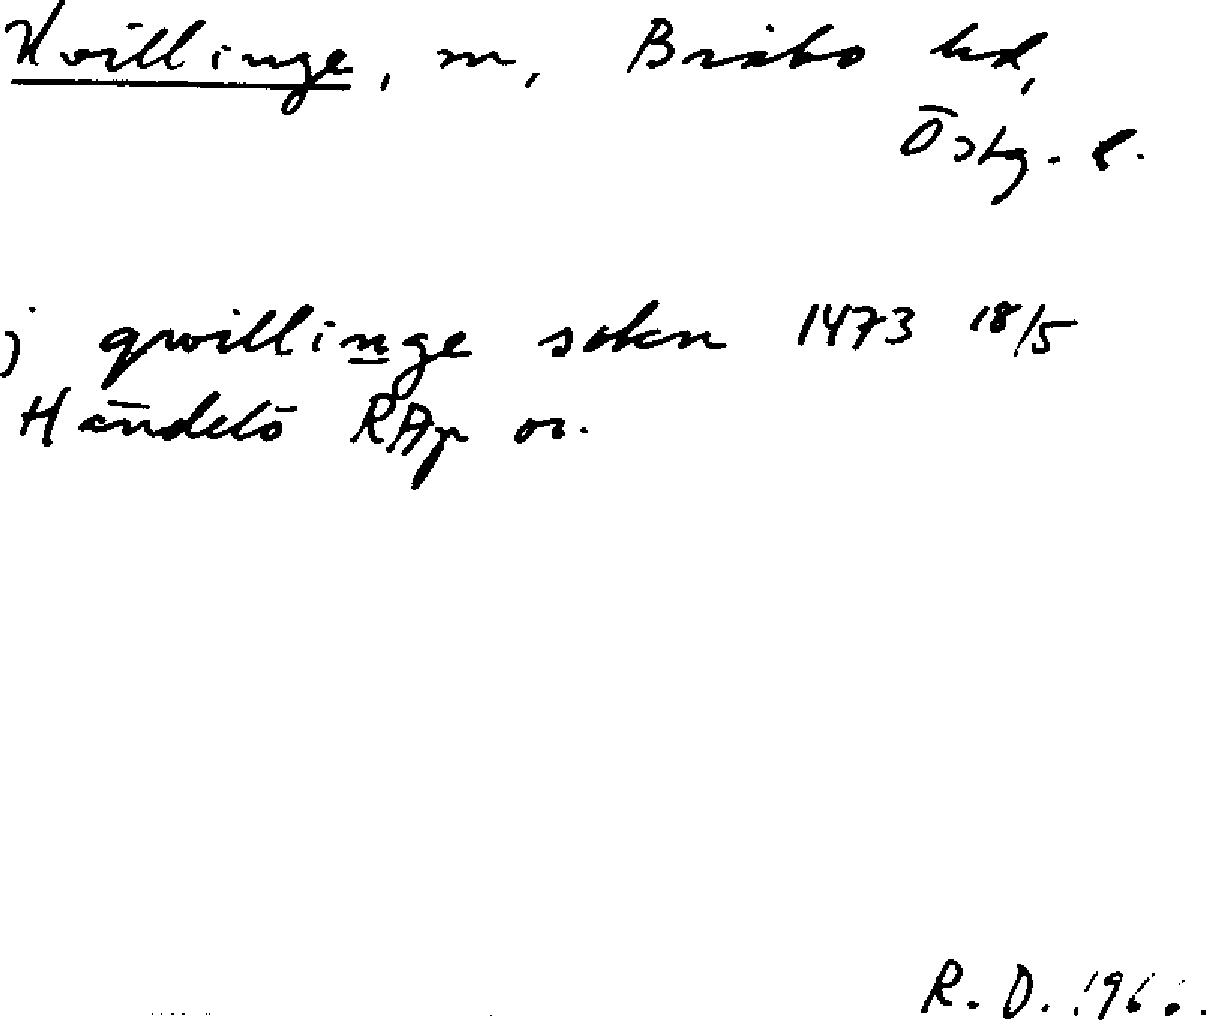 Kvillinge, sn, Bråbo hd,
Östg. l.
j qwillinge sokn 1473 18/5
Händelö RAp or.
R. D.